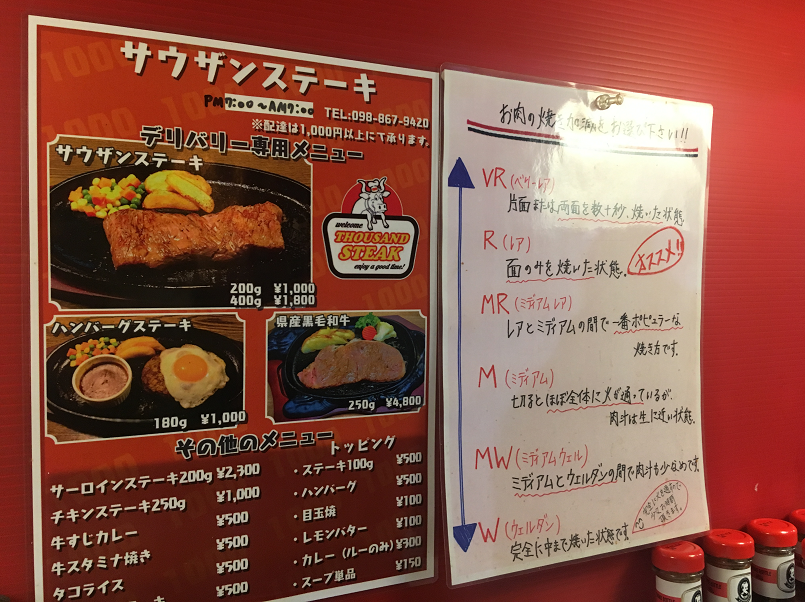 サウザンステーキ
PM7:00~AM7:00
TEL:098-867-9420
※配達は1,000円以上にて承ります。
デリバリー専用メニュー
サウザンステーキ
200g ¥1,000
400g ¥1,800
welcome
THOUSAND
STEAK
enjoy a good time!
ハンバーグステーキ
180g ¥1,000
県産黒毛和牛
250g ¥4,800
その他のメニュー
サーロインステーキ200g ¥2,300
チキンステーキ250g ¥1,000
牛すじカレー ¥500
牛スタミナ焼き ¥500
タコライス ¥500
¥500
トッピング
・ステーキ100g ¥500
・ハンバーグ ¥500
・目玉焼 ¥100
・レモンバター ¥100
・カレー(ルーのみ) ¥300
・スープ単品 ¥150
お肉の焼き加減をお選び下さい!!
VR(ベリーレア)
片面または両面を数十秒、焼いた状態
R(レア)
面のみを焼いた状態。
オススメ!!
MR(ミディアムレア)
レアとミディアムの間で一番ポピュラーな
焼き方です。
M(ミディアム)
切るとほぼ全体に火が通っているが、
肉汁は生に近い状態。
MW(ミディアムウェル)
ミディアムとウェルダンの間で肉汁も少なめです
W(ウェルダン)
完全に中まで焼いた状態です